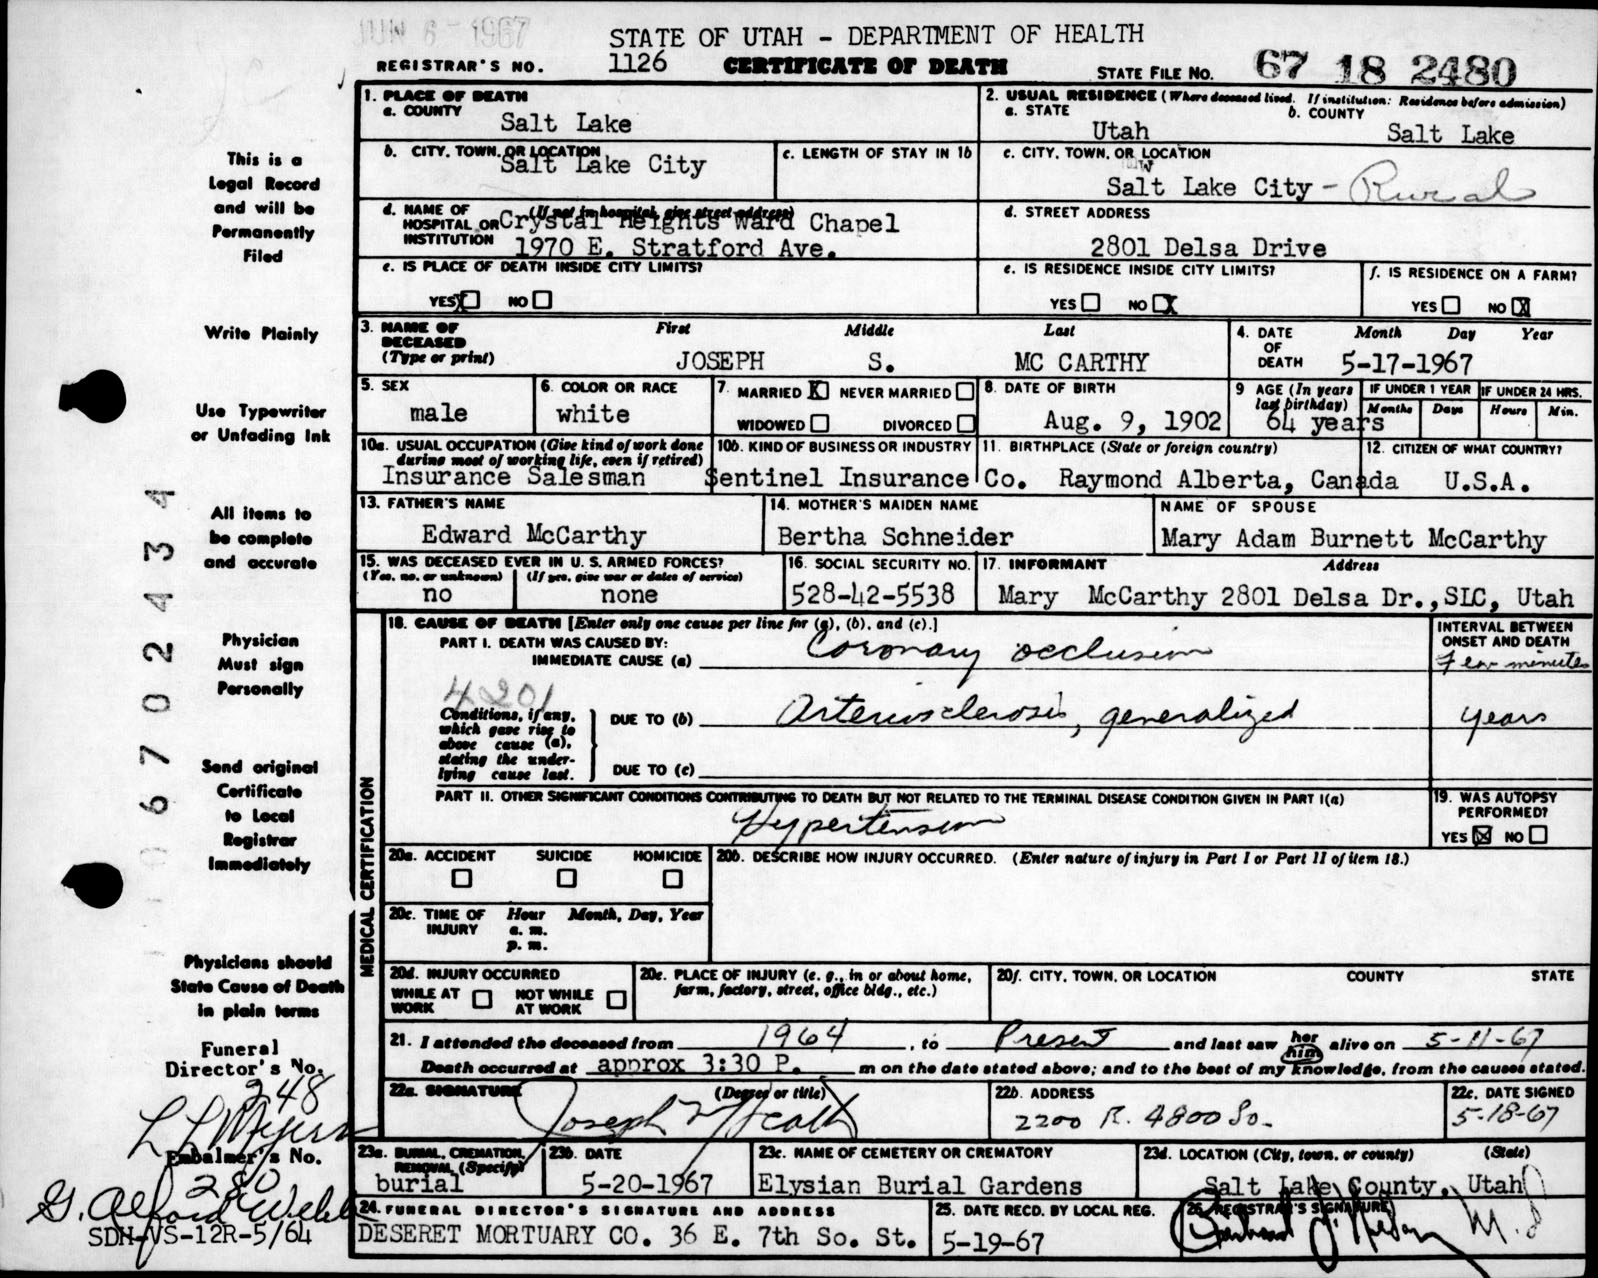 JUN 6 - 1967
STATE OF UTAH - DEPARTMENT OF HEALTH
REGISTRAR'S NO. 1126 CERTIFICATE OF DEATH STATE FILE NO. 67 18 2480
This is a
Legal Record
and will be
Permanently
Filed
Write Plainly
Use Typewriter
or Unfading Ink
All items to
be complete
and accurate
Physician
Must sign
Personally
Send original
Certificate
to Local
Registrar
Immediately
Physicians should
State Cause of Death
in plain terms
Funeral
Director's No.
248
L L Myers
Embalmer's No.
280
G. Alford Webb
SDH-VS-12R-5/64
0 6 7 0 2 4 3 4
1. PLACE OF DEATH
a. COUNTY
Salt Lake
2. USUAL RESIDENCE (Where deceased lived. If institution: Residence before admission)
a. STATE b. COUNTY
Utah Salt Lake
b. CITY, TOWN, OR LOCATION
Salt Lake City
c. LENGTH OF STAY IN 1b
c. CITY, TOWN, OR LOCATION
Salt Lake City - Rural
d. NAME OF HOSPITAL OR INSTITUTION (If not in hospital, give street address)
Crystal Heights Ward Chapel
1970 E. Stratford Ave.
d. STREET ADDRESS
2801 Delsa Drive
e. IS PLACE OF DEATH INSIDE CITY LIMITS?
YES X NO
e. IS RESIDENCE INSIDE CITY LIMITS?
YES NO X
f. IS RESIDENCE ON A FARM?
YES NO X
3. NAME OF DECEASED (Type or print)
First Middle Last
JOSEPH S. MC CARTHY
4. DATE OF DEATH Month Day Year
5-17-1967
5. SEX
male
6. COLOR OR RACE
white
7. MARRIED X NEVER MARRIED
WIDOWED DIVORCED
8. DATE OF BIRTH
Aug. 9, 1902
9 AGE (In years last birthday)
64 years
IF UNDER 1 YEAR IF UNDER 24 HRS.
Months Days Hours Min.
10a. USUAL OCCUPATION (Give kind of work done during most of working life, even if retired)
Insurance Salesman
10b. KIND OF BUSINESS OR INDUSTRY
Sentinel Insurance Co.
11. BIRTHPLACE (State or foreign country)
Raymond Alberta, Canada
12. CITIZEN OF WHAT COUNTRY?
U.S.A.
13. FATHER'S NAME
Edward McCarthy
14. MOTHER'S MAIDEN NAME
Bertha Schneider
NAME OF SPOUSE
Mary Adam Burnett McCarthy
15. WAS DECEASED EVER IN U. S. ARMED FORCES?
(Yes, no, or unknown) (If yes, give war or dates of service)
no none
16. SOCIAL SECURITY NO.
528-42-5538
17. INFORMANT Address
Mary McCarthy 2801 Delsa Dr., SLC, Utah
MEDICAL CERTIFICATION
18. CAUSE OF DEATH [Enter only one cause per line for (a), (b), and (c).]
PART I. DEATH WAS CAUSED BY:
IMMEDIATE CAUSE (a) Coronary occlusion
INTERVAL BETWEEN ONSET AND DEATH
Few minutes
4201
Conditions, if any, which gave rise to above cause (a), stating the underlying cause last.
DUE TO (b) Arteriosclerosis, generalized
years
DUE TO (c)
PART II. OTHER SIGNIFICANT CONDITIONS CONTRIBUTING TO DEATH BUT NOT RELATED TO THE TERMINAL DISEASE CONDITION GIVEN IN PART I(a)
Hypertension
19. WAS AUTOPSY PERFORMED?
YES X NO
20a. ACCIDENT SUICIDE HOMICIDE
20b. DESCRIBE HOW INJURY OCCURRED. (Enter nature of injury in Part I or Part II of item 18.)
20c. TIME OF INJURY Hour Month, Day, Year
a. m.
p. m.
20d. INJURY OCCURRED
WHILE AT WORK NOT WHILE AT WORK
20e. PLACE OF INJURY (e. g., in or about home, farm, factory, street, office bldg., etc.)
20f. CITY, TOWN, OR LOCATION COUNTY STATE
21. I attended the deceased from 1964, to Present and last saw her him alive on 5-11-67
Death occurred at approx 3:30 P. m on the date stated above; and to the best of my knowledge, from the causes stated.
22a. SIGNATURE (Degree or title)
Joseph
22b. ADDRESS
2200 4800 So.
22c. DATE SIGNED
5-18-67
23a. BURIAL, CREMATION, REMOVAL (Specify)
burial
23b. DATE
5-20-1967
23c. NAME OF CEMETERY OR CREMATORY
Elysian Burial Gardens
23d. LOCATION (City, town, or county) (State)
Salt Lake County, Utah
24. FUNERAL DIRECTOR'S SIGNATURE AND ADDRESS
DESERET MORTUARY CO. 36 E. 7th So. St.
25. DATE RECD. BY LOCAL REG.
5-19-67
26. REGISTRAR'S SIGNATURE
M.D.